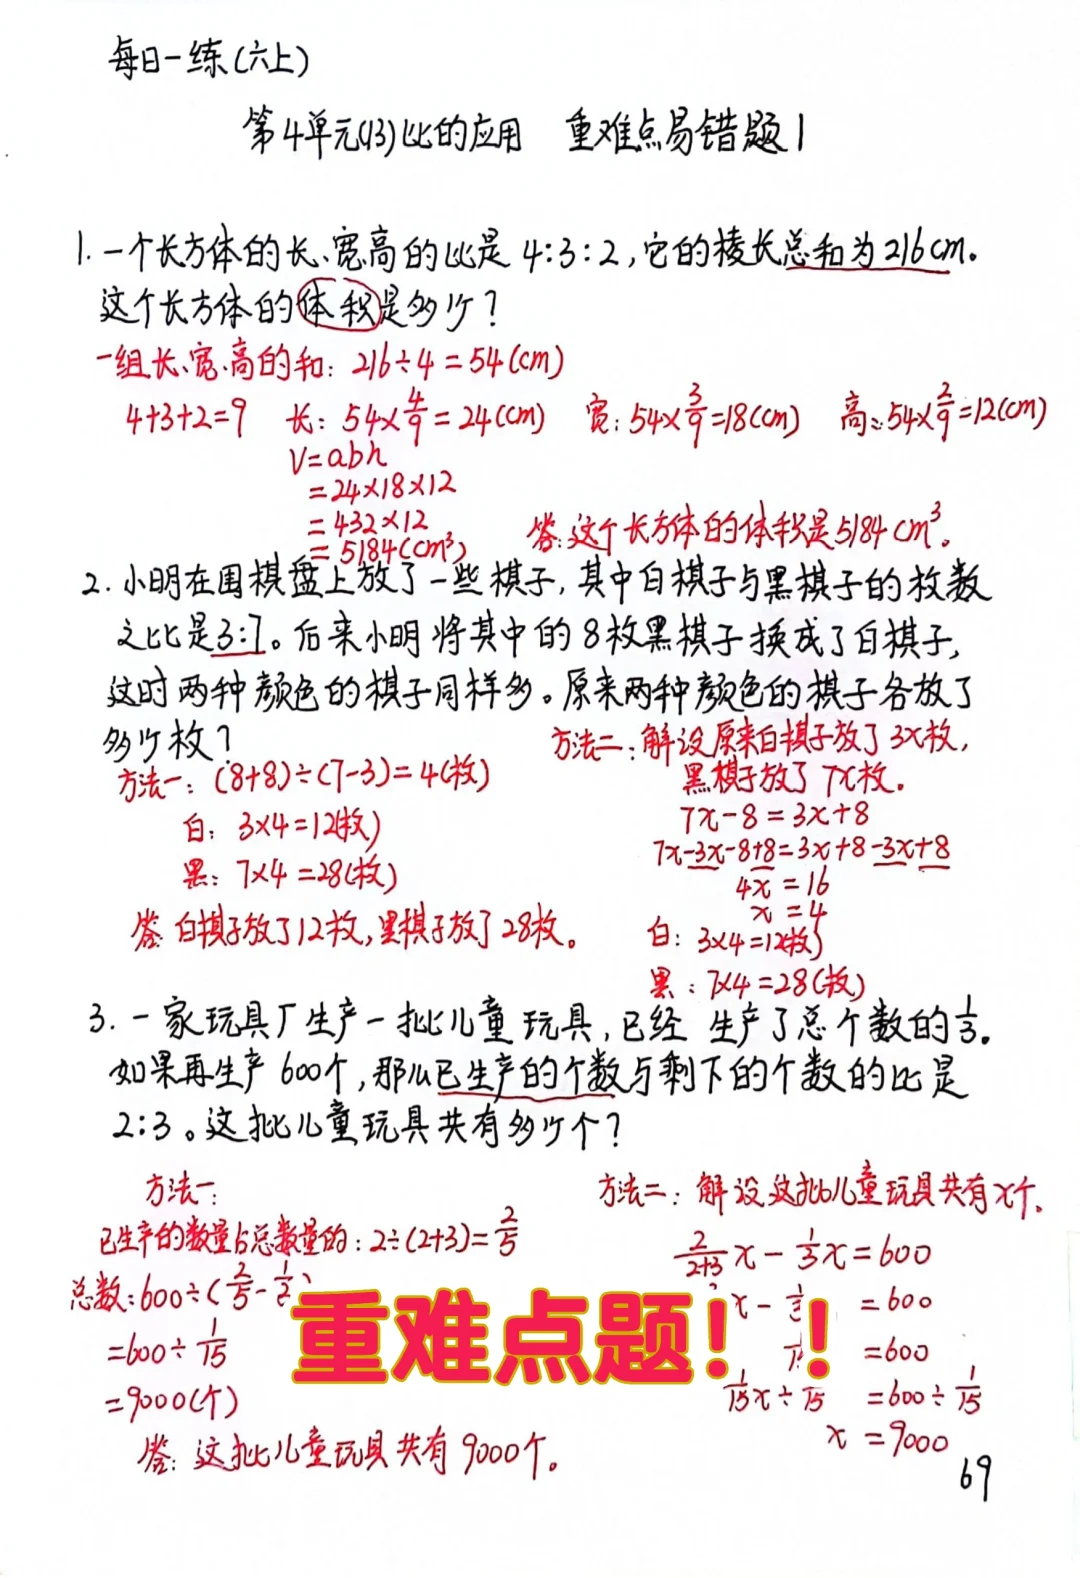 每日一练(六上)
第4单元(13)比的应用 重难点易错题1
1.一个长方体的长、宽、高的比是4:3:2,它的棱长总和为216cm。
这个长方体的体积是多少?
一组长、宽、高的和: 216÷4=54(cm)
4+3+2=9 长: 54×4/9=24(cm) 宽: 54×3/9=18(cm) 高: 54×2/9=12(cm)
V=abh
=24×18×12
=432×12
=5184(cm³)
答:这个长方体的体积是5184cm³。
2.小明在围棋盘上放了一些棋子,其中白棋子与黑棋子的枚数
之比是3:7。后来小明将其中的8枚黑棋子换成了白棋子,
这时两种颜色的棋子同样多。原来两种颜色的棋子各放了
多少枚?
方法一: (8+8)÷(7-3)=4(枚)
白: 3×4=12(枚)
黑: 7×4=28(枚)
答:白棋子放了12枚,黑棋子放了28枚。
方法二:解设原来白棋子放了3x枚,
黑棋子放了7x枚。
7x-8=3x+8
7x-3x-8+8=3x+8-3x+8
4x=16
x=4
白: 3×4=12(枚)
黑: 7×4=28(枚)
3.一家玩具厂生产一批儿童玩具,已经生产了总个数的1/3。
如果再生产600个,那么已生产的个数与剩下的个数的比是
2:3。这批儿童玩具共有多少个?
方法一:
已生产的数量占总数量的: 2÷(2+3)=2/5
总数: 600÷(2/5-1/
=600÷1/15
=9000(个)
答:这批儿童玩具共有9000个。
方法二:解设这批儿童玩具共有x个。
2/2+3x-1/3x=600
x- =600
=600
1/15x÷ 15 =600÷1/15
x=9000
重难点题!!
69